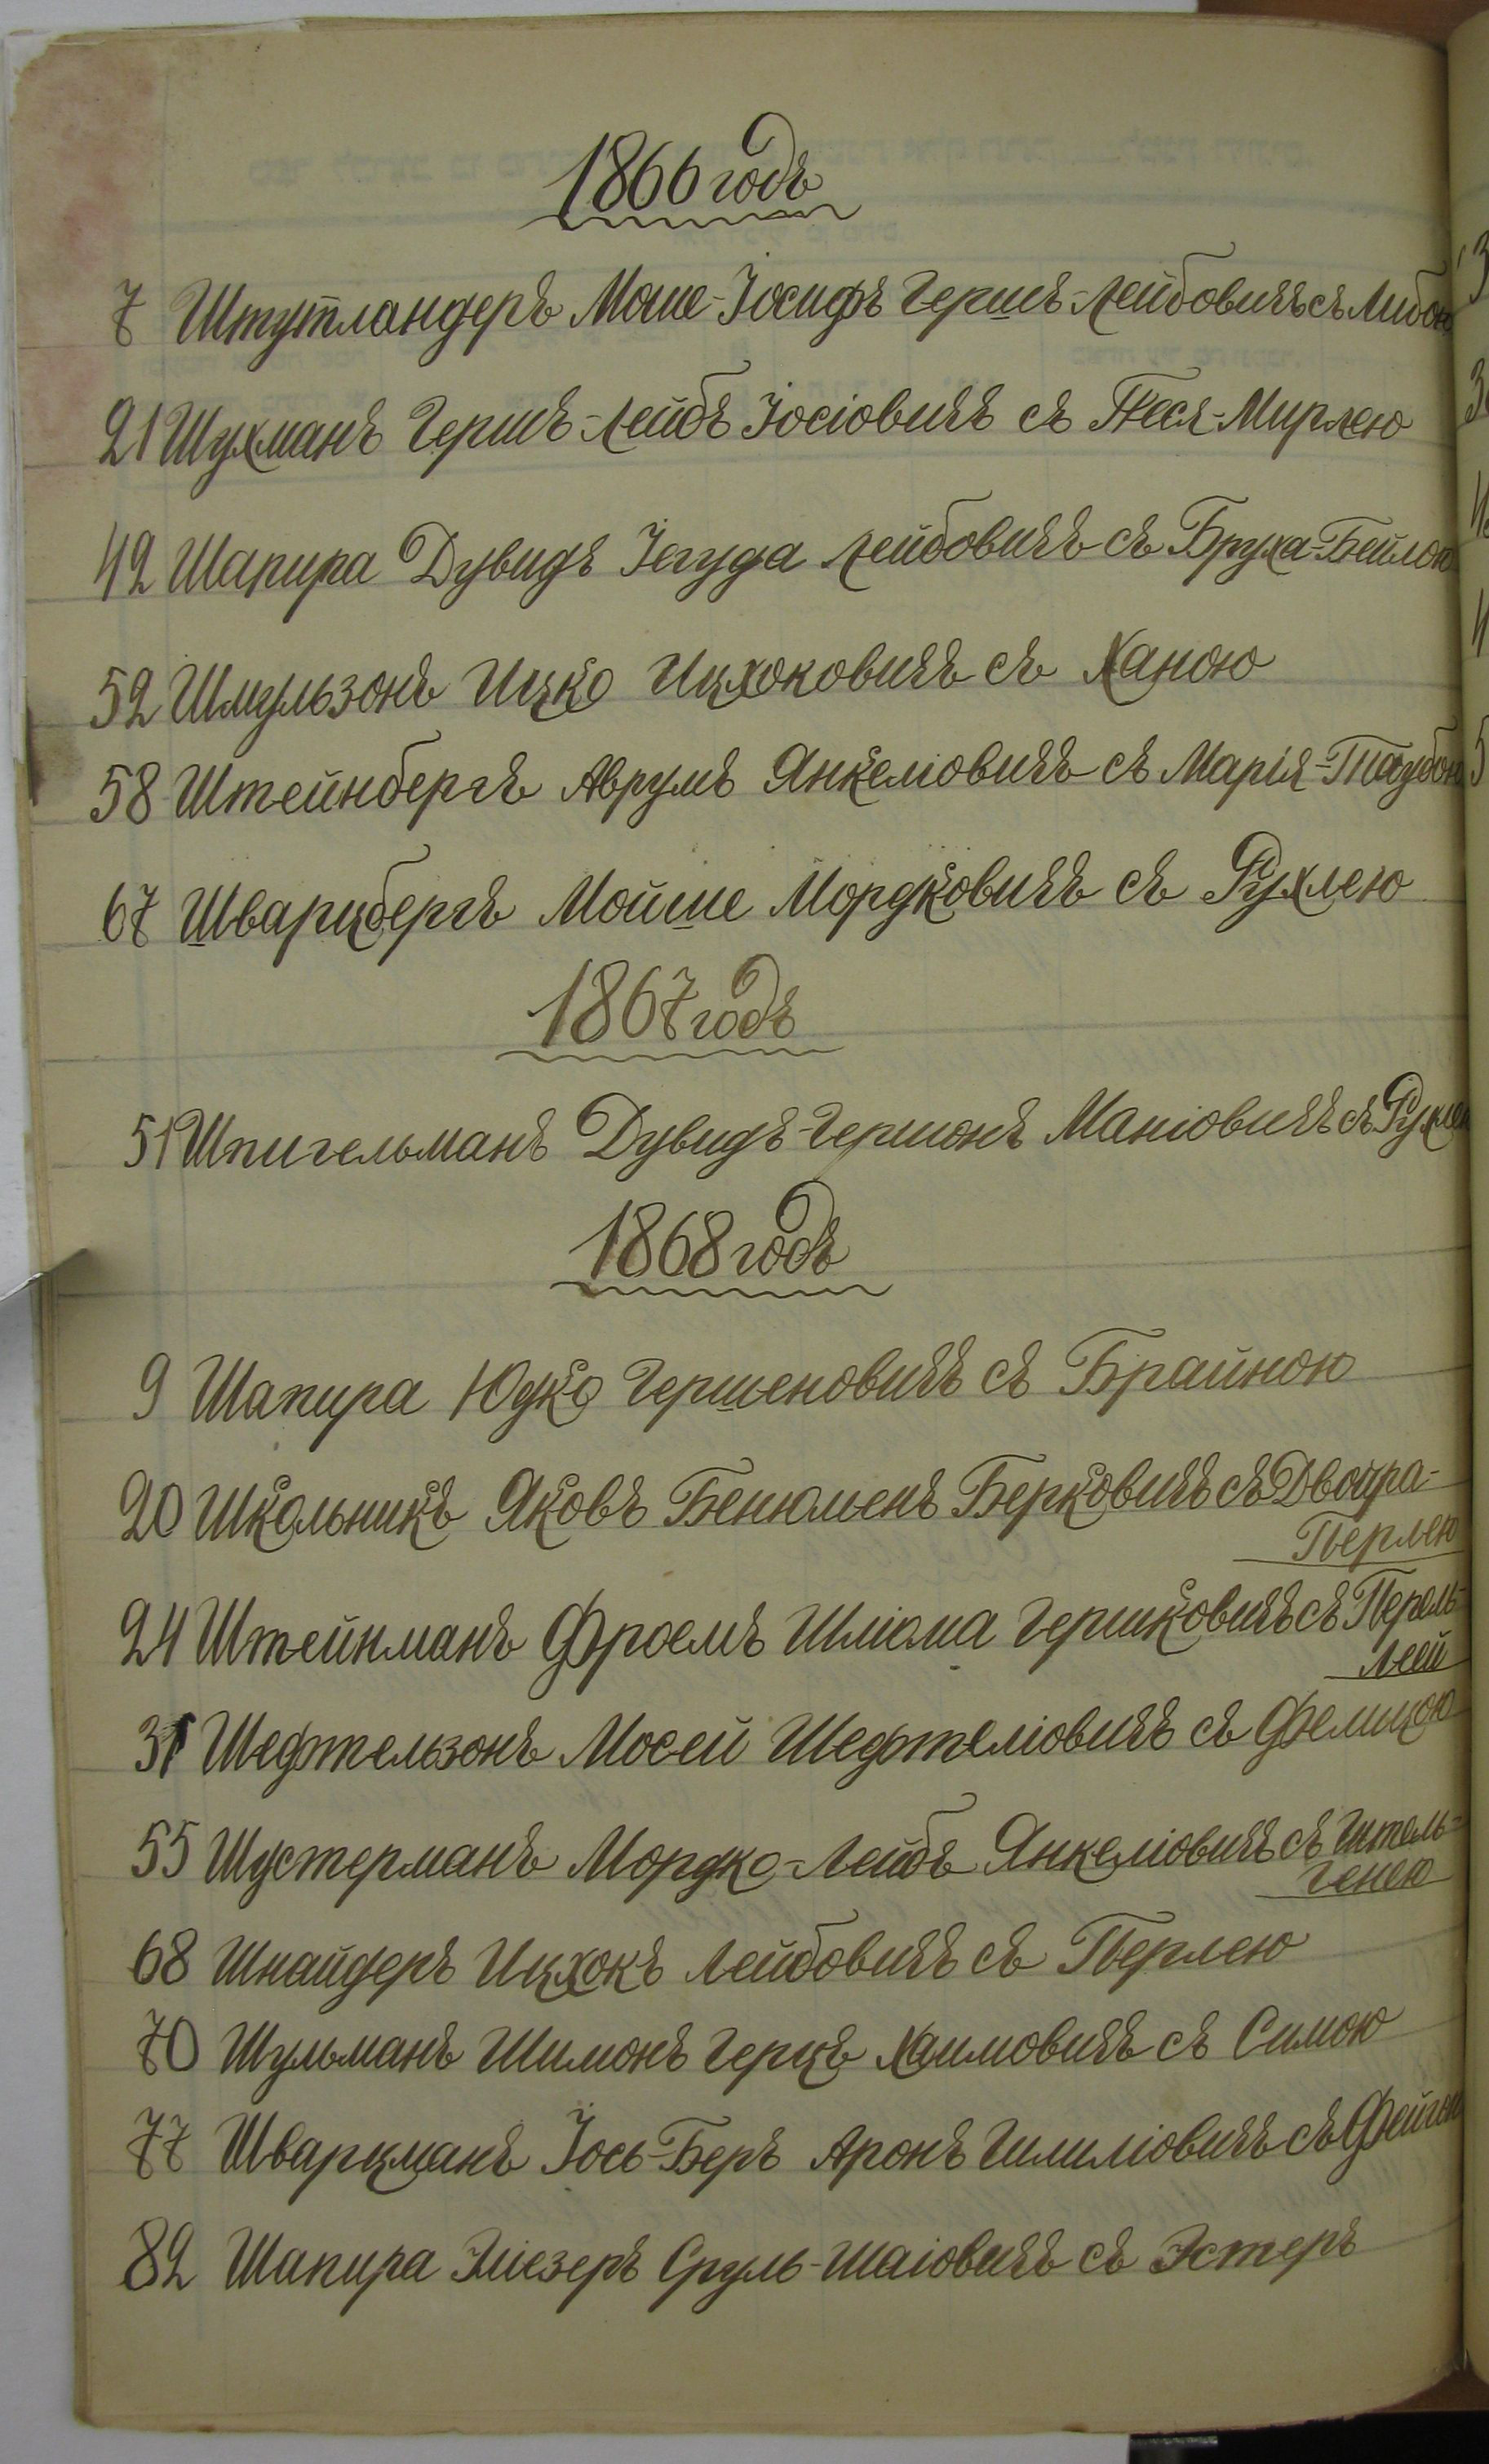 1866 годъ
7 Штутландеръ Моше-Іосифъ Гершъ-Лейбовичъ съ Либою
21 Шухманъ Гершъ-Лейбъ Іосіовичъ съ Песя-Мирлею
42 Шапира Дувидъ Іегуда Лейбовичъ съ Бруха-Бейлою
52 Шмульзонъ Ицко Ицхоковичъ съ Ханою
58 Штейнбергъ Аврумъ Янкеліовичъ съ Марія-Таубою
67 Шварцбергъ Мойше Мордковичъ съ Рухлею
1867 годъ
51 Шпигельманъ Дувидъ-Гершонъ Маніовичъ съ Рухлею
1868 годъ
9 Шапира Юдко Гершеновичъ съ Брайною
20 Школьникъ Яковъ Бенюменъ Берковичъ съ Двойра-
Перлею
24 Штейнманъ Фроемъ Шліома Гершковичъ съ Перель-
Леей
31 Шефтельзонъ Мосей Шефтеліовичъ съ Фелицою
55 Шустерманъ Мордко-Лейбъ Янкеліовичъ съ Гитель-
Генею
68 Шнайдеръ Ицхокъ Лейбовичъ съ Перлею
70 Шульманъ Шимонъ Герцъ Хаимовичъ съ Симою
77 Шварцманъ Іось-Беръ Аронъ Гилиліовичъ съ Фейгою
82 Шапира Эліезеръ Сруль-Шаіовичъ съ Эстеръ